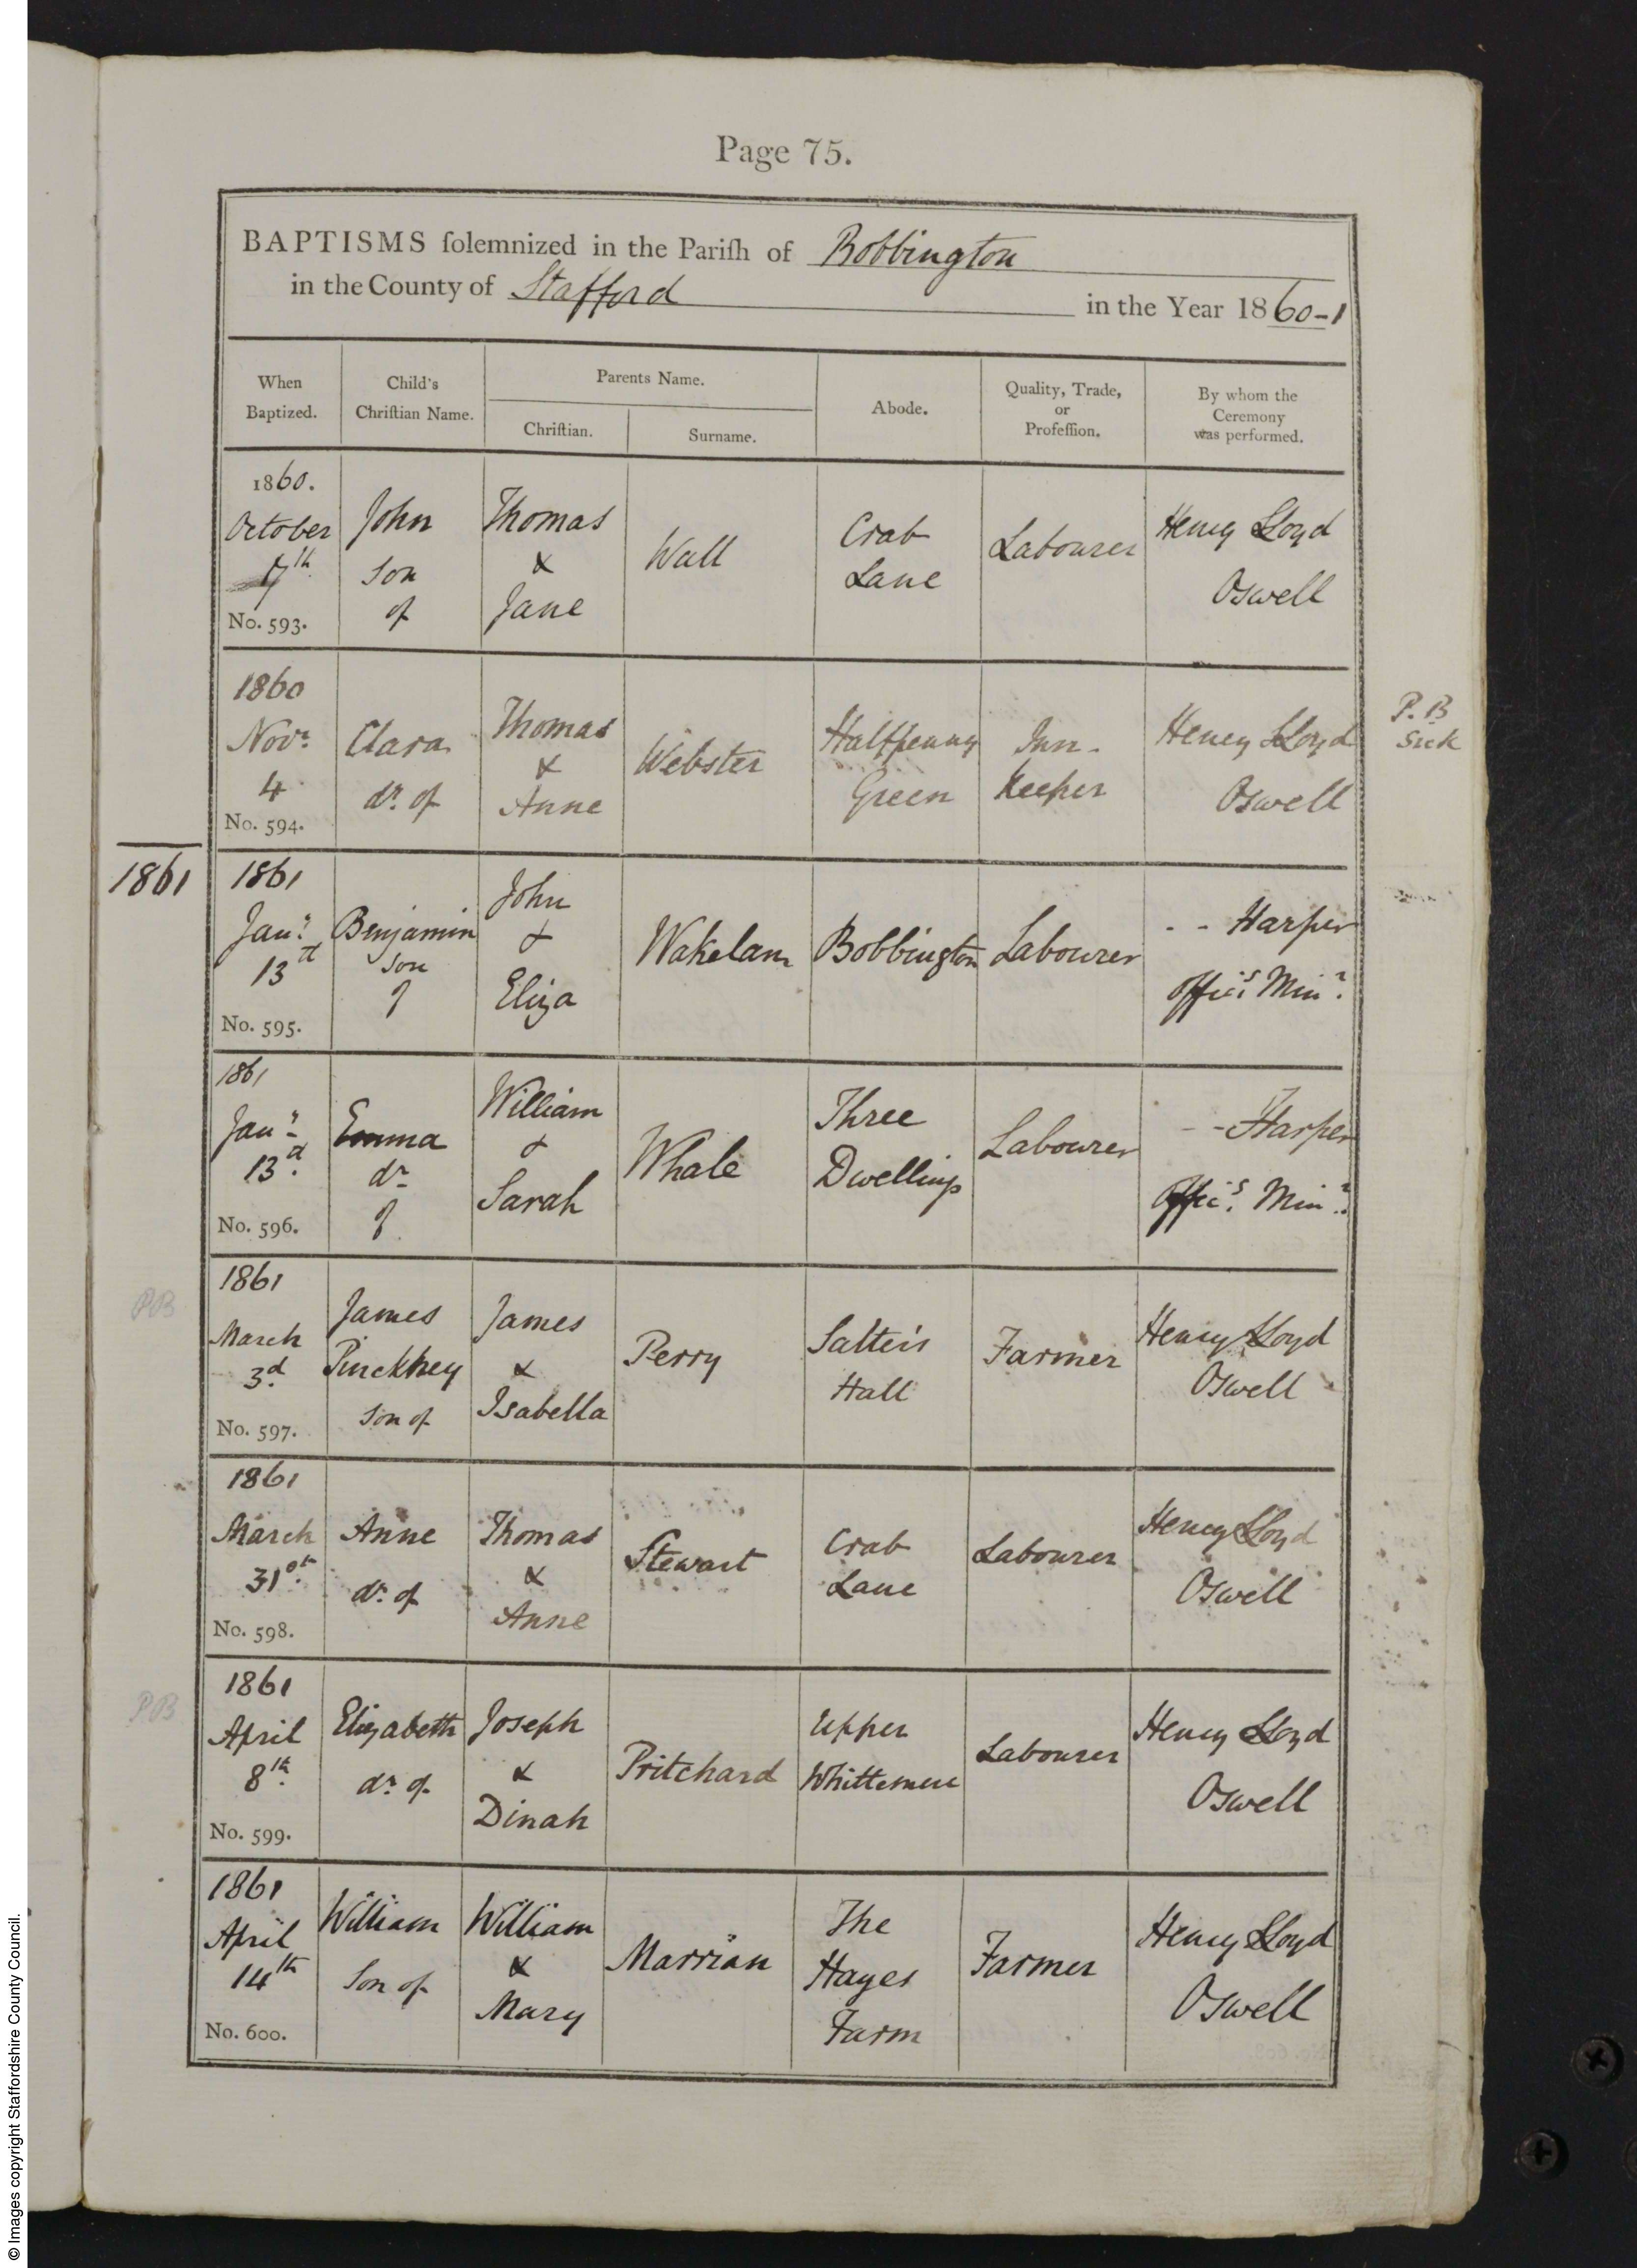 Page 75.
BAPTISMS solemnized in the Parish of Bobbington
in the County of Stafford in the Year 1860-1
When Baptized.
Child's Christian Name.
Parents Name.
Christian.
Surname.
Abode.
Quality, Trade, or Profession.
By whom the Ceremony was performed.
1860.
October
7th
No. 593.
John
Son
of
Thomas
&
Jane
Wall
Crab
Lane
Labourer
Henry Lloyd
Oswell
1860
Novr
4
No. 594.
Clara
dr. of
Thomas
&
Anne
Webster
Halfpenny
Green
Inn-
Keeper
Henry Lloyd
Oswell
P.B
Sick
1861
1861
Jany
13d
No. 595.
Benjamin
Son
of
John
&
Eliza
Wakelam
Bobbington
Labourer
- - Harper
Offics Minr.
1861
Jany
13d.
No. 596.
Emma
dr
of
William
&
Sarah
Whale
Three
Dwellings
Labourer
- - Harper
Offics. Minr.
PB
1861
March
3d
No. 597.
James
Pinckney
Son of
James
&
Isabella
Perry
Salter's
Hall
Farmer
Henry Lloyd
Oswell
1861
March
31st
No. 598.
Anne
dr. of
Thomas
&
Anne
Stewart
Crab
Lane
Labourer
Henry Lloyd
Oswell
PB
1861
April
8th.
No. 599.
Elizabeth
dr. of
Joseph
&
Dinah
Pritchard
Upper
Whittemere
Labourer
Henry Lloyd
Oswell
1861
April
14th
No. 600.
William
Son of
William
&
Mary
Marrian
The
Hayes
Farm
Farmer
Henry Lloyd
Oswell
© Images copyright Staffordshire County Council.